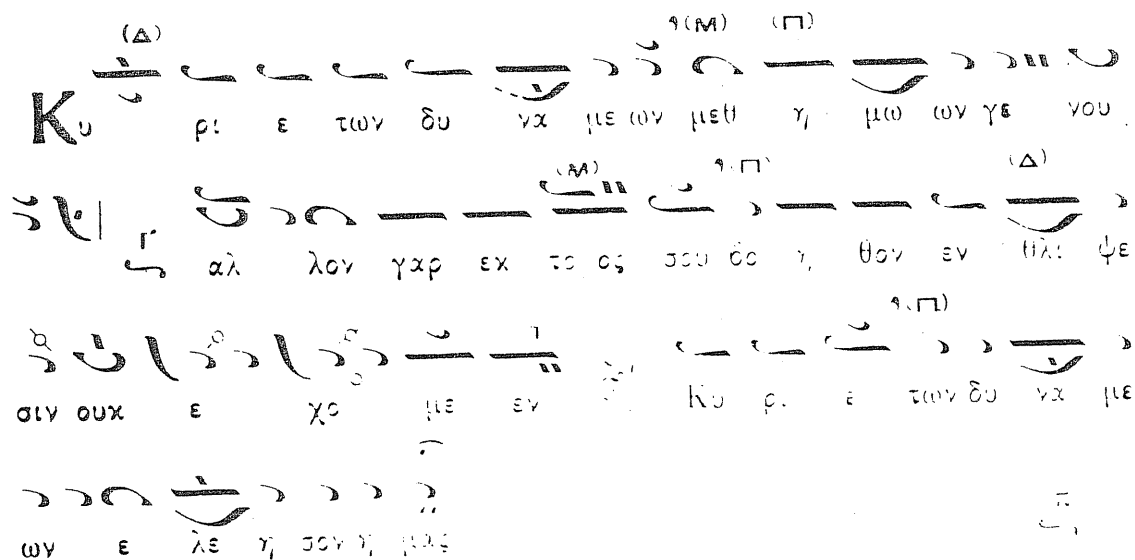 (Δ) (Μ) (Π)
Κυ ρι ε των δυ να με ων μεθ η μω ων γε νου
(Μ) (Π) (Δ)
Γ αλ λον γαρ εκ το ος σου βο η θον εν θλι ψε
(Π)
σιν ουκ ε χο με εν Κυ ρι ε των δυ να με
ων ε λε η σον η μας π